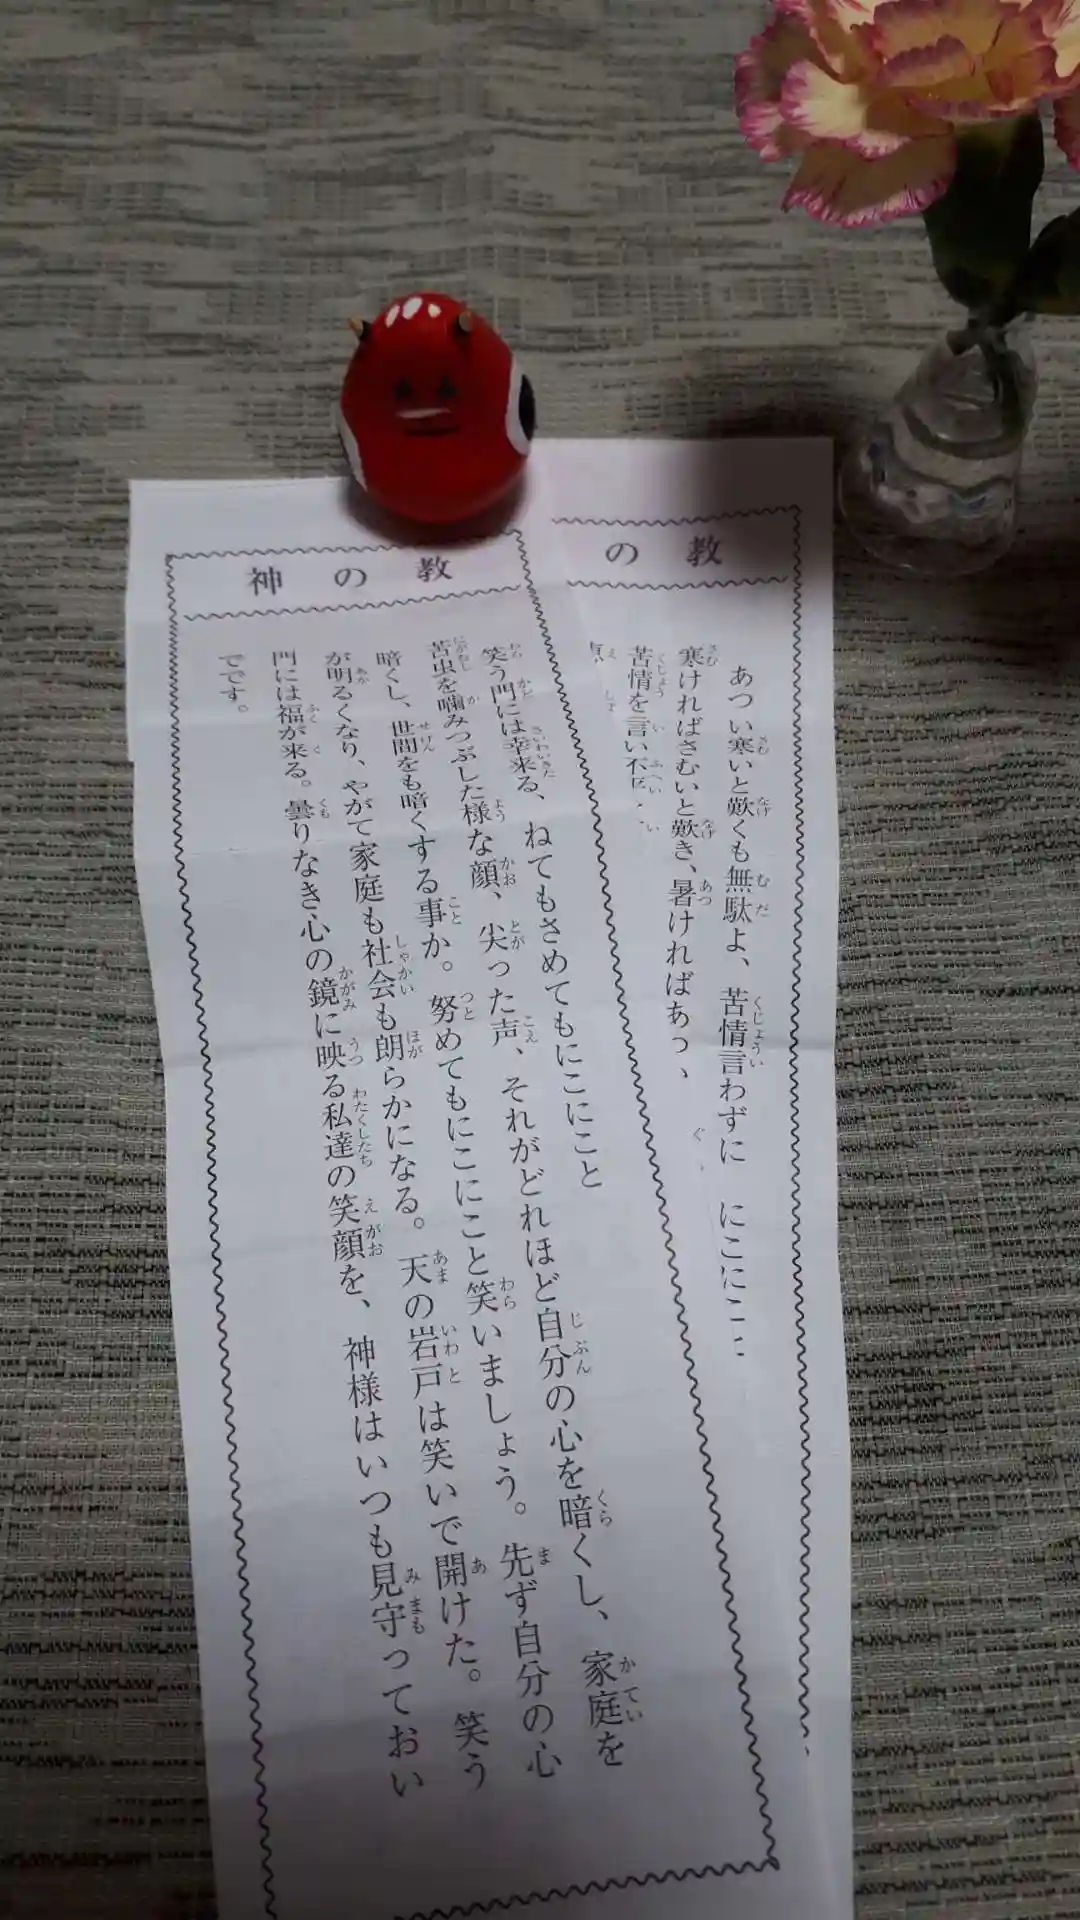 の教
あつい寒いと歎くも無駄よ、苦情言わずに にこにこ
寒ければさむいと歎き、暑ければあつ
苦情を言い不
神の教
笑う門には幸来る、ねてもさめてもにこにこと
苦虫を噛みつぶした様な顔、尖った声、それがどれほど自分の心を暗くし、家庭を
暗くし、世間をも暗くする事か。努めてもにこにこと笑いましょう。先ず自分の心
が明るくなり、やがて家庭も社会も朗らかになる。天の岩戸は笑いで開けた。笑う
門には福が来る。曇りなき心の鏡に映る私達の笑顔を、神様はいつも見守っておい
でです。